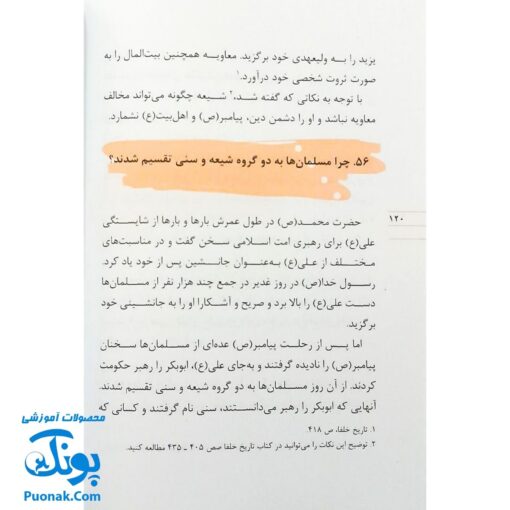 یزید را به ولیعهدی خود برگزید. معاویه همچنین بیت‌المال را به
صورت ثروت شخصی خود درآورد.۱
با توجه به نکاتی که گفته شد،۲ شیعه چگونه می‌تواند مخالف
معاویه نباشد و او را دشمن دین، پیامبر(ص) و اهل‌بیت(ع) نشمارد.
۵۶. چرا مسلمان‌ها به دو گروه شیعه و سنی تقسیم شدند؟
۱۲۰
حضرت محمد(ص) در طول عمرش بارها و بارها از شایستگی
علی(ع) برای رهبری امت اسلامی سخن گفت و در مناسبت‌های
مختلف از علی(ع) به‌عنوان جانشین پس از خود یاد کرد.
رسول خدا(ص) در روز غدیر در جمع چند هزار نفر از مسلمان‌ها
دست علی(ع) را بالا برد و صریح و آشکارا او را به جانشینی خود
برگزید.
اما پس از رحلت پیامبر(ص) عده‌ای از مسلمان‌ها سخنان
پیامبر(ص) را نادیده گرفتند و به‌جای علی(ع)، ابوبکر را رهبر حکومت
کردند. از آن روز مسلمان‌ها به دو گروه شیعه و سنی تقسیم شدند.
آنهایی که ابوبکر را رهبر می‌دانستند، سنی نام گرفتند و کسانی که
۱. تاریخ خلفا، ص ۴۱۸
۲. توضیح این نکات را می‌توانید در کتاب تاریخ خلفا صص ۴۰۵ ـ ۴۳۵ مطالعه کنید.
محصولات آموزشی
پونک
Puonak.Com